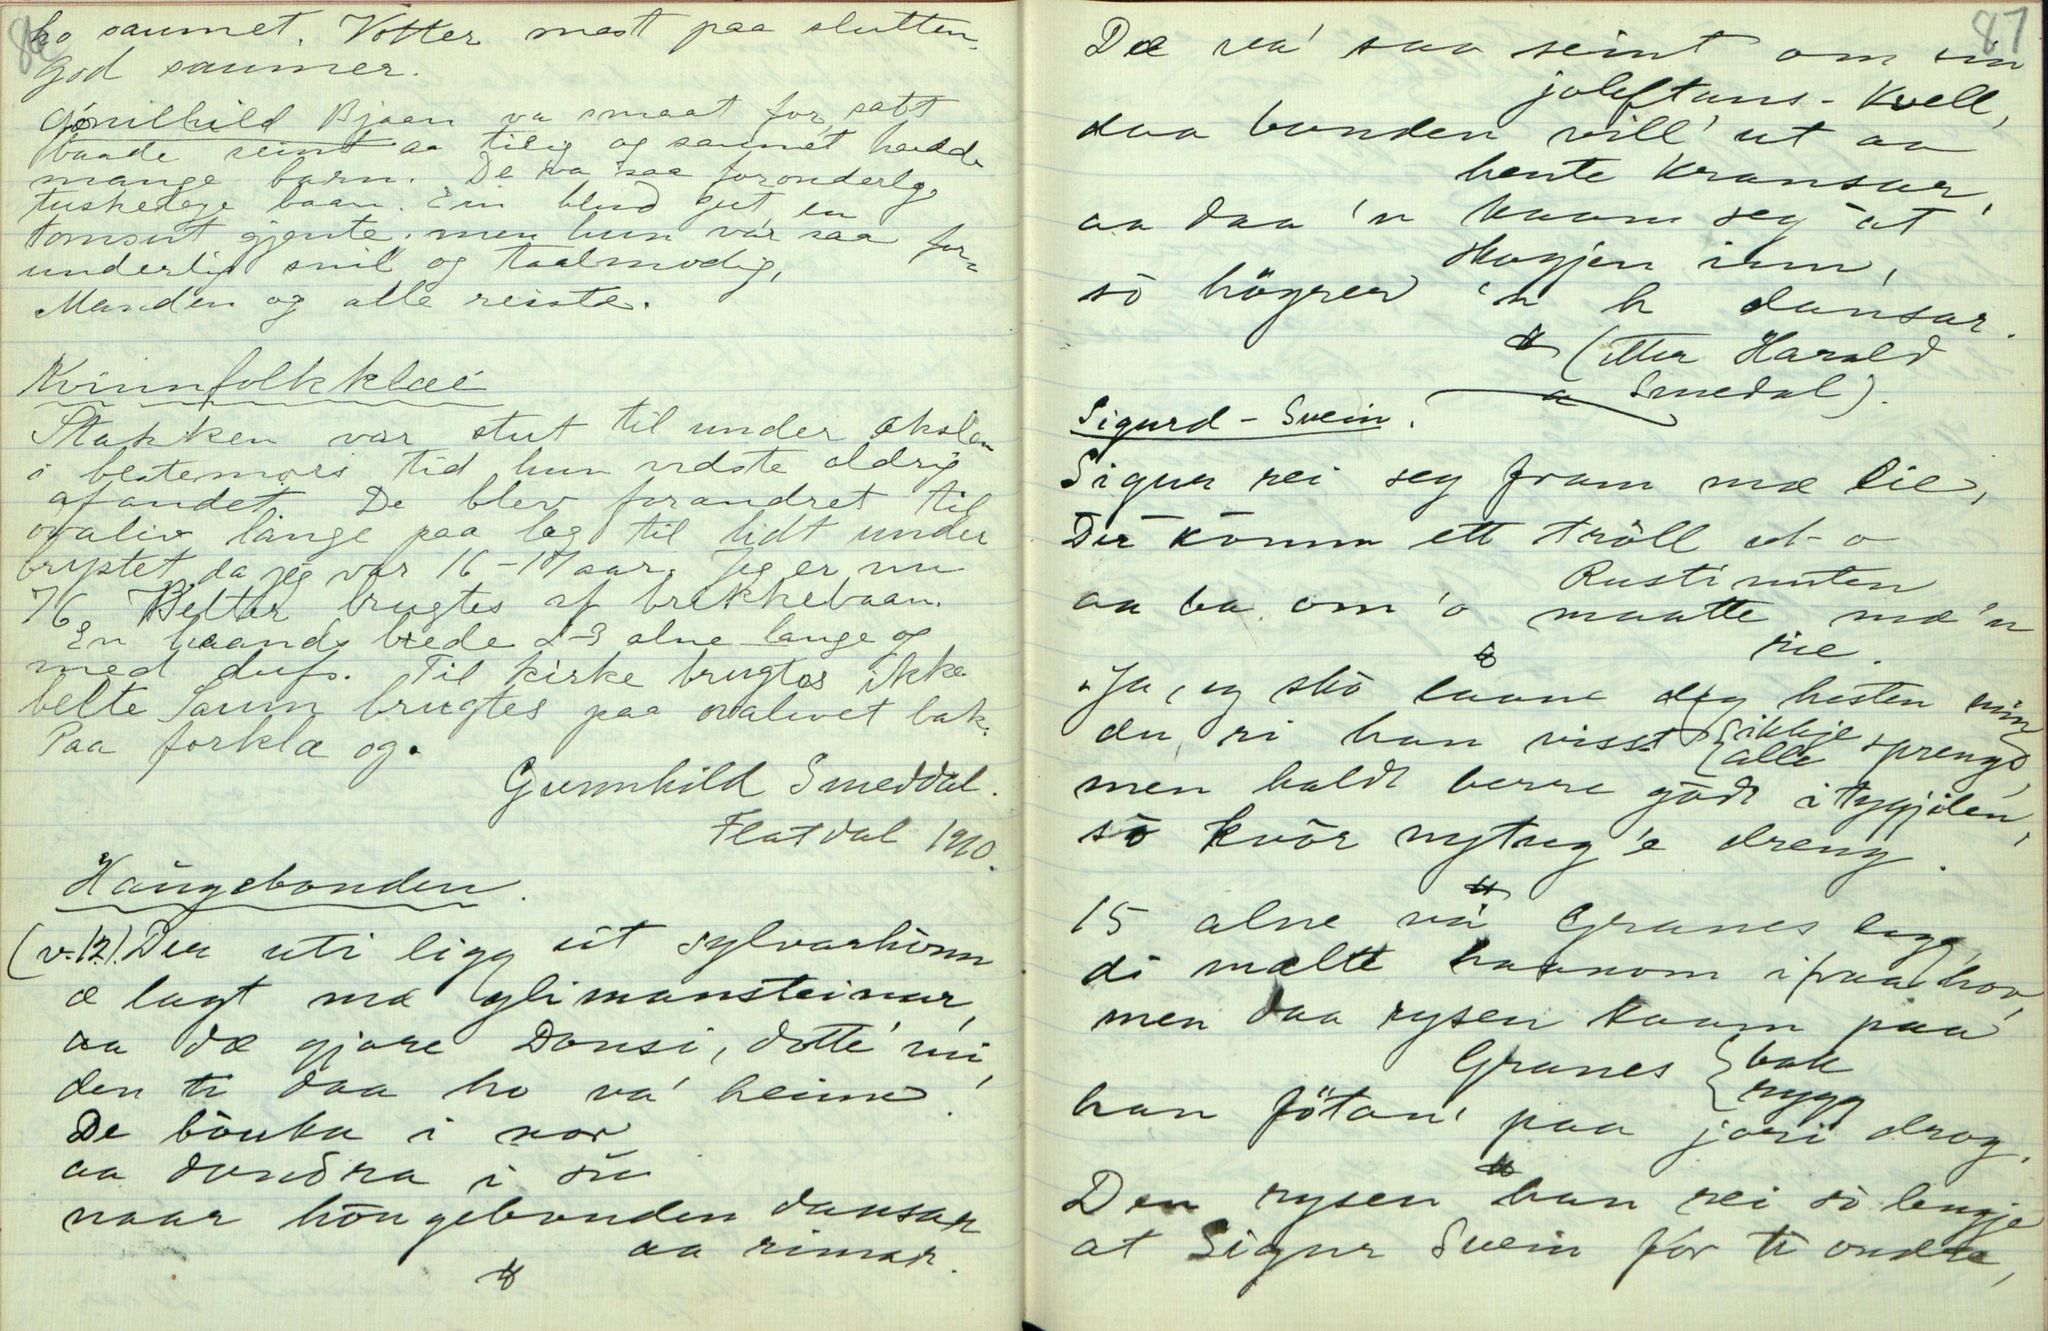 86
ho saumet. Votter mest paa slutten.
god saumer.
Gónilhild Bjaan va smaat for, satt
baade seint aa tilig og saumet hadde
mange barn. De va saa foronderlog
tuskedege baan. Ein blind gut, en
tomsut gjente. men hun var saa for-
underlig snil og taalmodig,
Manden og alle reiste.
Kvinnfolkklæi
Stakken var stut til under akslan
i bestemors tid hun vidste aldrig
af andet. De blev forandret til
ovaliv lange paa lag til lidt under
brystet da jeg var 16-17 aar. Jeg er nu
76 Belter brugtes af brikkebaan.
En haands brede 2-3 alne lange og
med dusk. Til kirke brugtes ikke
belte Saum brugtes paa ovalivet bak.
Paa forklæ og.
Gunnhild Smeddal.
Flatdal 1910.
Haugebonden.
(v. 12). Der uti ligg eit sylvarhònn
æ lagt mæ glimansteinar,
aa dæ gjore Dansi, dotte' mi,
den ti daa ho va' heime.
De bònka i nor
aa dondra i sù
naar hòngebonden dansar
aa rimar.
87
Dæ va' saa seint om ein
joleftans-Kvell,
daa bonden vill' ut aa
hente Kransar,
aa daa 'n kaam seg at
Skogjen inn,
sò högrer 'n h dansar.
(etter Harald
Smedal).
Sigurd-Svein.
Sigur rei seg fram mæ lie,
Der kòmm ett tröll ut-o
Rustinuten
aa ba om 'o maatte mæ 'n
rie.
"Ja, eg skò laane deg hesten min
du ri han visst {ikkje / alle} spreng
men haldt berre gòdt i tygjilen,
sò kvòr nytug 'e dreng.
15 alne va' Granes legg,
di mælte haanom ifraa hov,
men daa rysen kaam paa
Granes {bak / rygg}
han fötan' paa jori drog.
Den rysen han rei sò lengje
at Sigur Svein fór ti ondre,